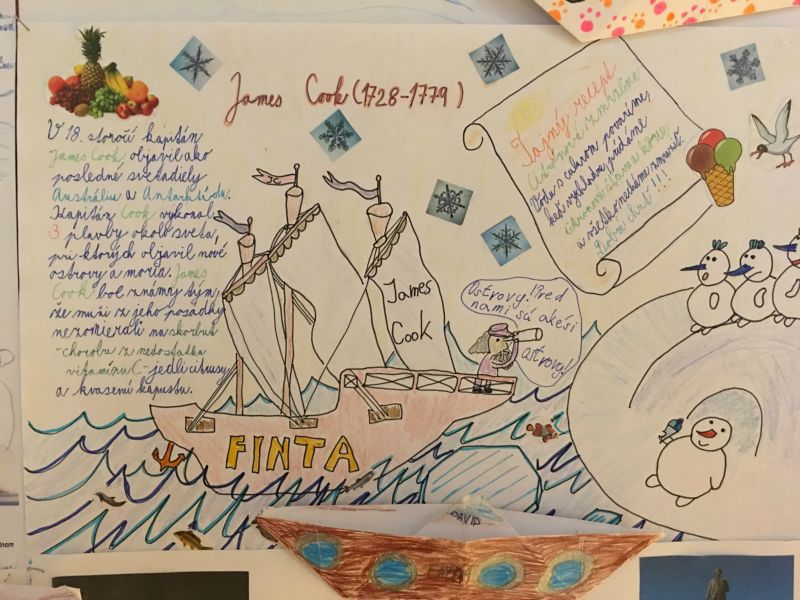 James Cook (1728-1779)
V 18. storočí kapitán
James Cook objavil ako
posledné svetadiely
Austráliu a Antarktídu.
Kapitán Cook vykonal
3 plavby okolo sveta,
pri ktorých objavil nové
ostrovy a moria. James
Cook bol známy tým,
že muži z jeho posádky
nezomierali na skorbut
-chorobu z nedostatku
vitamínu C- jedli citrusy
a kvasenú kapustu.
Tajný recept
Citrónová zmrzlina
Voda s cukrom povaríme,
keď vychladne, pridáme
citrónovú šťavu
a všetko necháme zmraziť.
Dobrú chuť!!!
James
Cook
Ostrovy! Pred
nami sú akési
ostrovy!
FINTA
DAVID